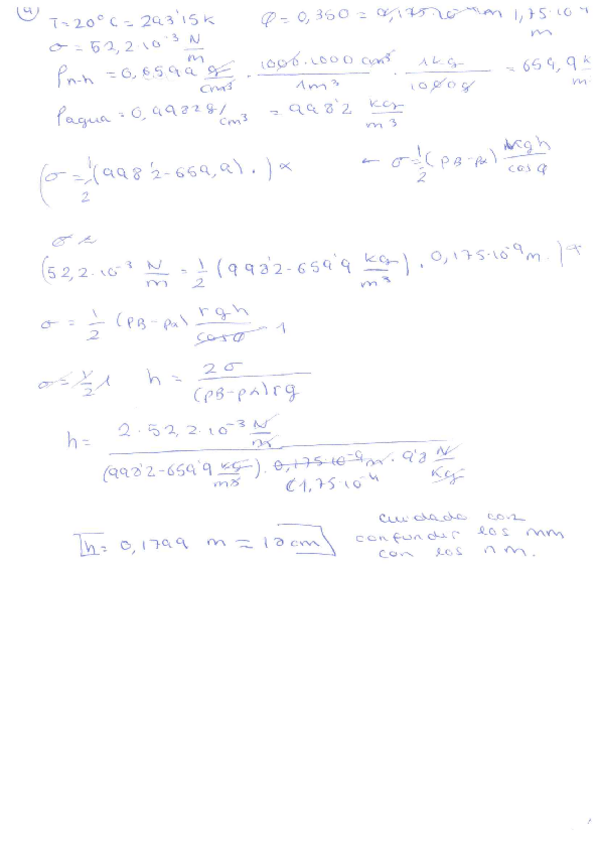 4) T=20ºC = 293'15 K φ = 0,350 = 0,175·10⁻⁹ m 1,75·10⁻⁴ m
σ = 52,2·10⁻³ N/m
ρn-h = 0,6599 g/cm³ · 100³·1000 cm³/1m³ · 1kg/1000g = 659,9 k/m
ρagua = 0,9982 g/cm³ = 998'2 kg/m³
(σ = 1/2 (998'2-659,9) · ) ∝ ← σ = 1/2 (ρB-ρα) rgh/cosφ
σ =
(52,2·10⁻³ N/m = 1/2 (998'2-659'9 kg/m³) · 0,175·10⁻⁹ m · )
σ = 1/2 (ρB-ρα) rgh/cosθ 1
σ = 1/2 1 h = 2σ/(ρB-ρα)rg
h = 2·52,2·10⁻³ N/m / (998'2-659'9 kg/m³) · 0,175·10⁻⁹ m · 9'8 N/Kg
(1,75·10⁻⁴
h = 0,1799 m = 18 cm
cuidado con
confundir los mm
con los nm.